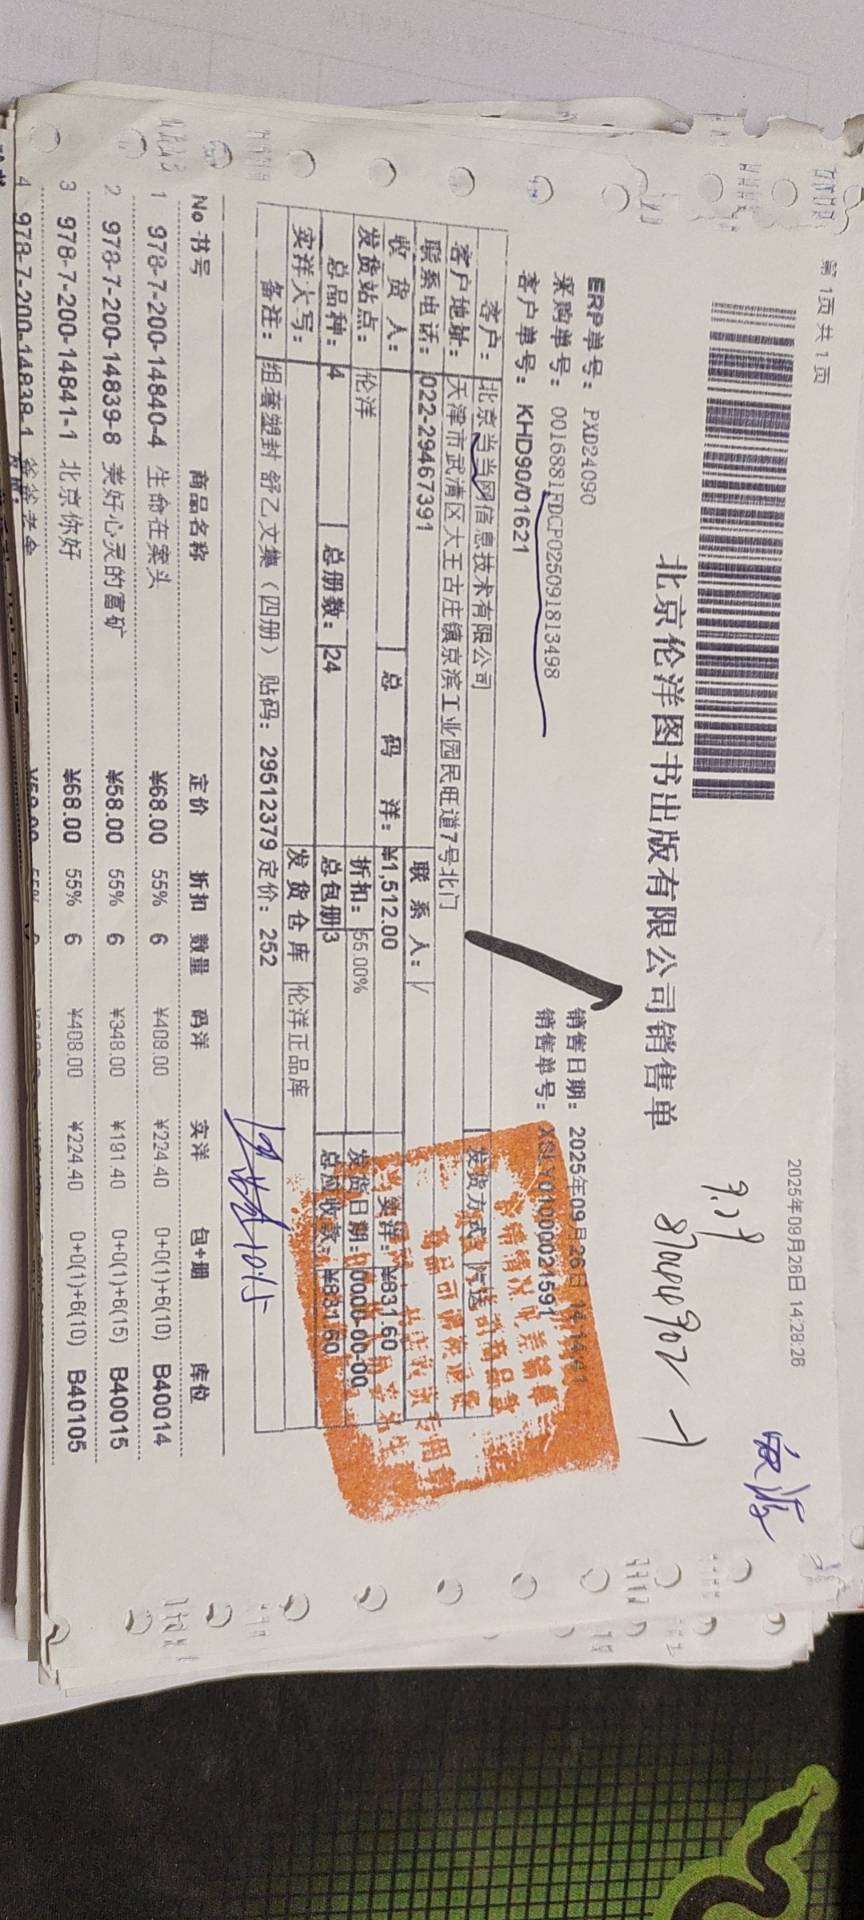 第 1页 共 1 页
2025年09月26日 14:28:28
北京伦洋图书出版有限公司销售单
9.29
ERP单号： PXD24090
销售日期： 2025年09月26日 14:14:41
采购单号： 0016881FDCP025091813498
销售单号： XSLY01000021591
客户单号： KHD90/01621
客户： 北京当当网信息技术有限公司 发货方式
客户地址： 天津市武清区大王古庄镇京滨工业园民旺道7号北门
联系电话： 022-29467391 联系人： /
收货人： 总码洋： ¥1,512.00 实洋： ¥831.60
发货站点： 伦洋 折扣： 55.00% 发货日期： 0000-00-00
总品种： 4 总册数： 24 总包册 3 总应收款： ¥831.60
实洋大写： 发货仓库 伦洋正品库
备注： 组套塑封 舒乙文集（四册）贴码：29512379 定价：252
No 书号 商品名称 定价 折扣 数量 码洋 实洋 包+册 库位
1 978-7-200-14840-4 生命在案头 ¥68.00 55% 6 ¥408.00 ¥224.40 0+0(1)+6(10) B40014
2 978-7-200-14839-8 美好心灵的富矿 ¥58.00 55% 6 ¥348.00 ¥191.40 0+0(1)+6(15) B40015
3 978-7-200-14841-1 北京你好 ¥68.00 55% 6 ¥408.00 ¥224.40 0+0(1)+6(10) B40105
4 978-7-200-14838-1 爸爸老舍 ¥58.00 55%